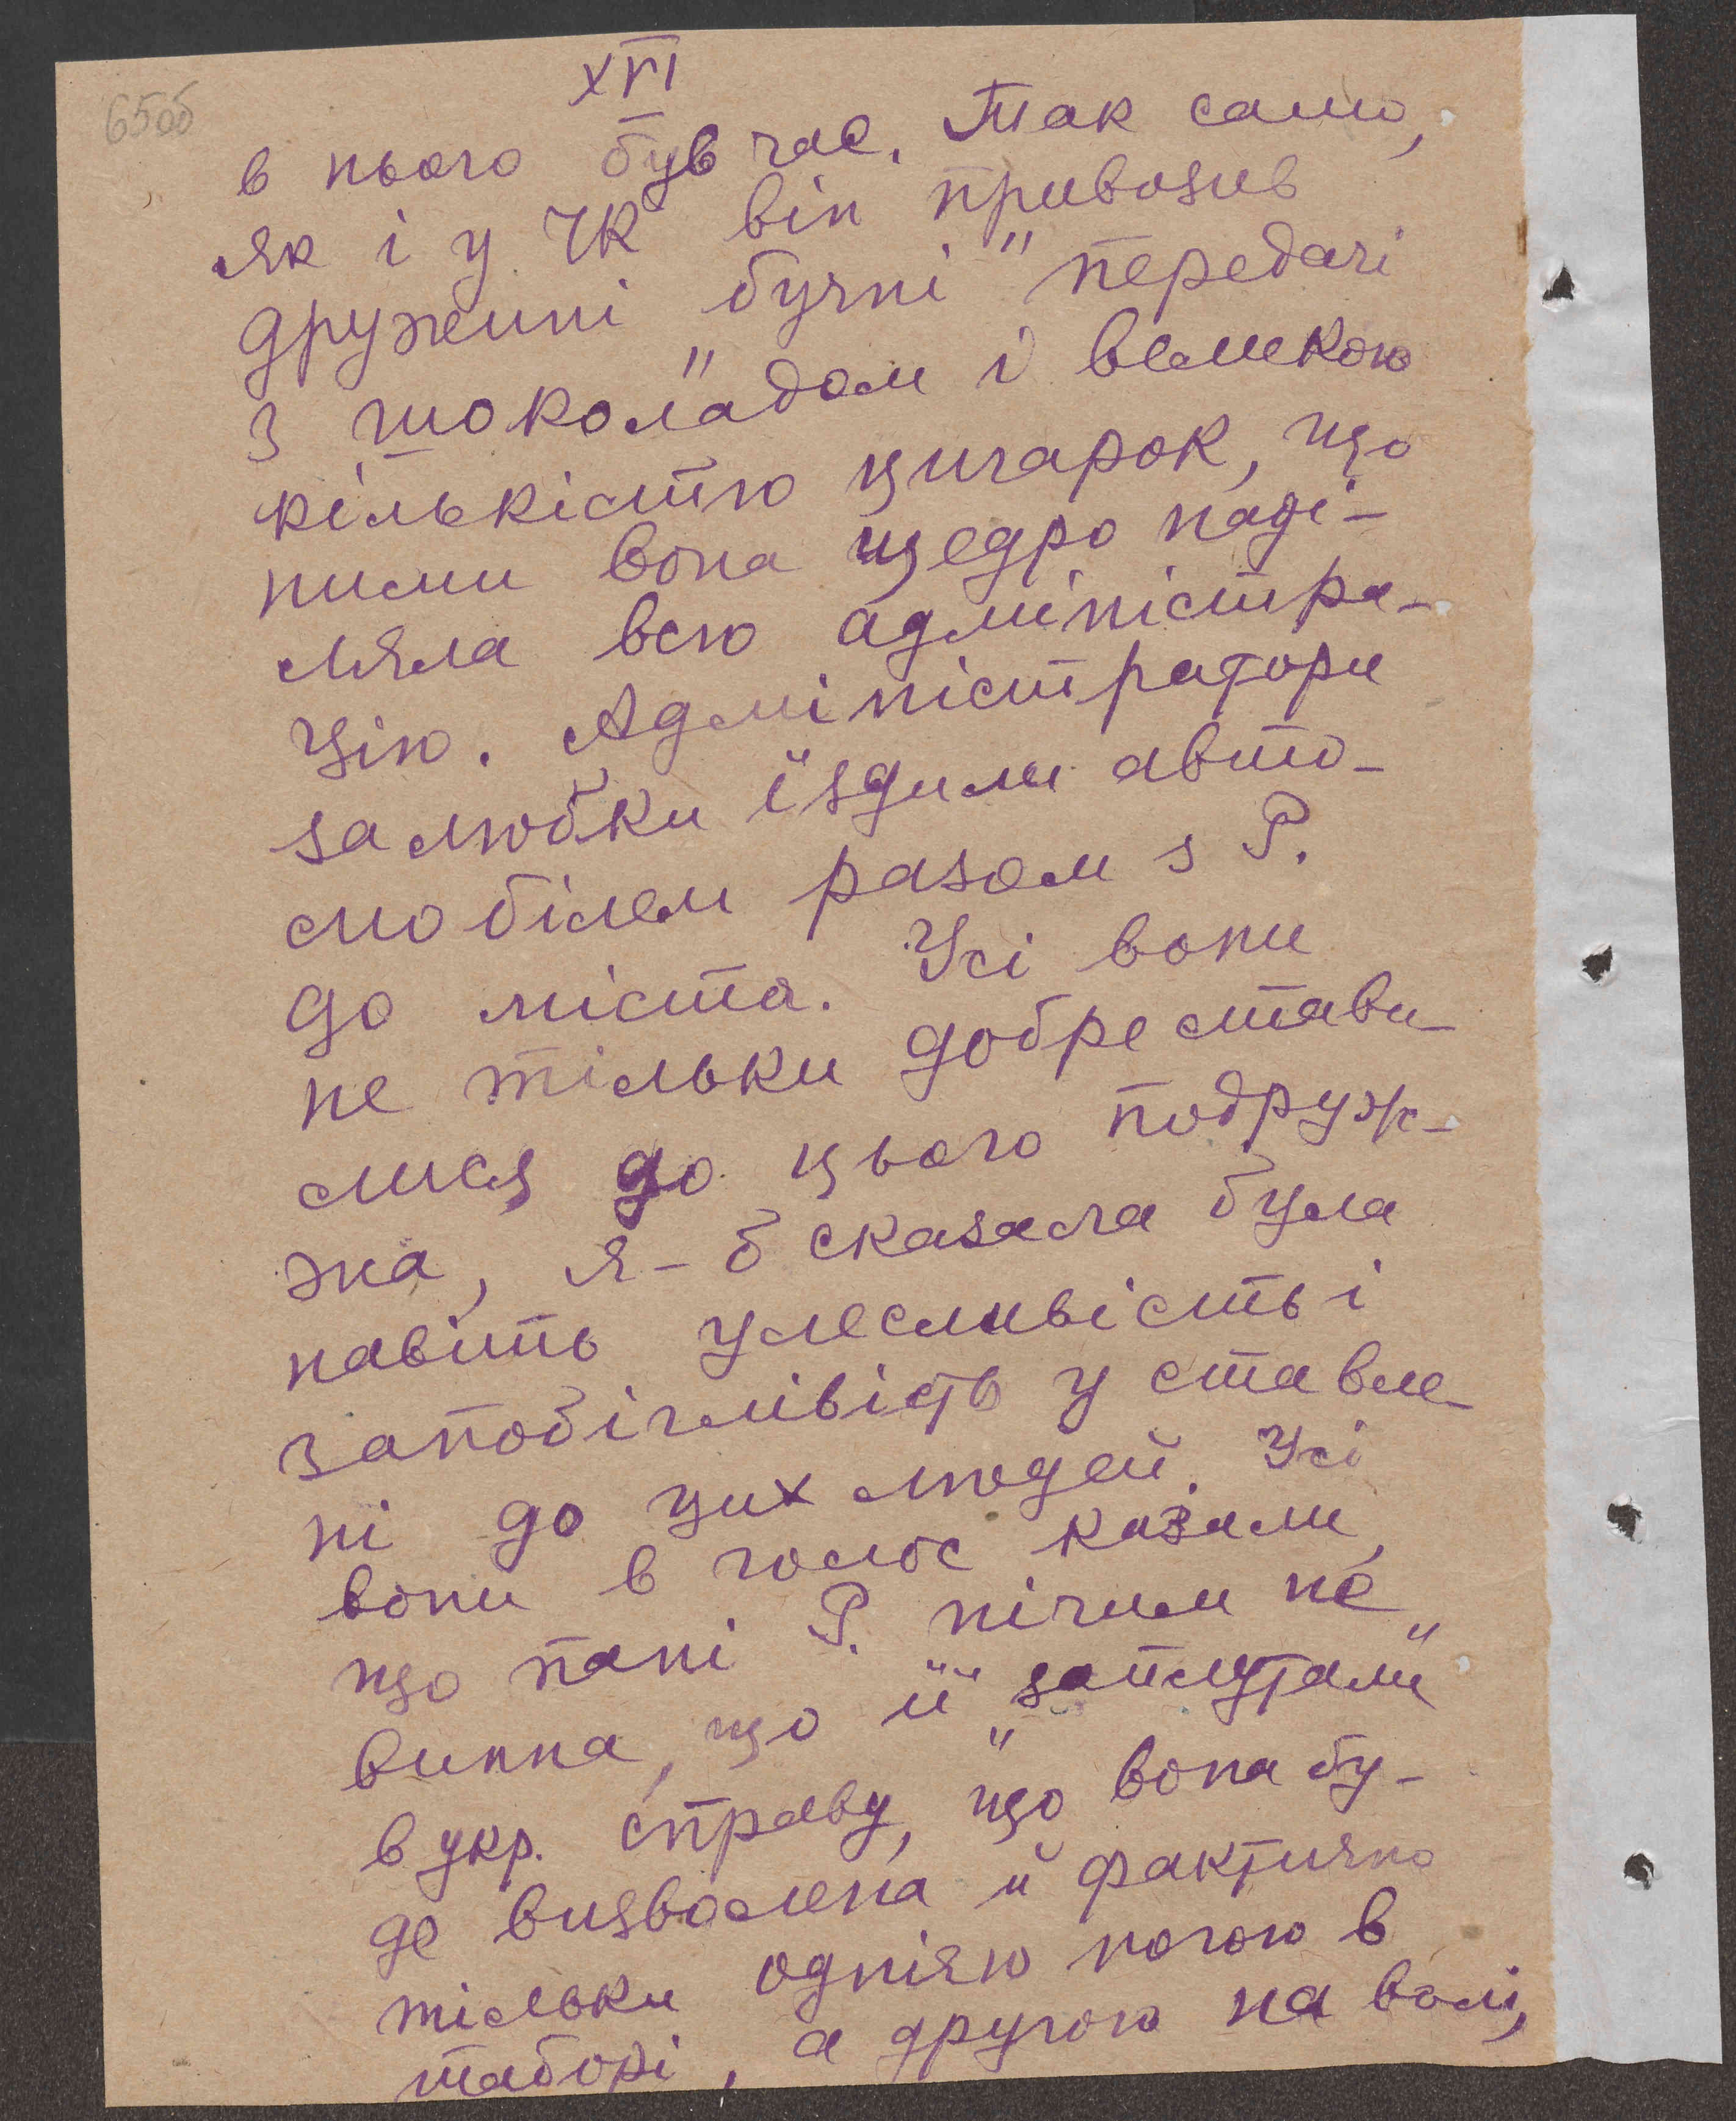 XVI
650б
в нього був час. Так само,
як і у ЧК він привозив
дружині „бучні" передачі
з шоколадом і великою
кількістю цигарок, що
ними вона щедро наді-
ляла всю адміністра-
цію. Адміністратори
залюбки їздили авто-
мобілем разом з Р.
до міста. Усі вони
не тільки добре стави-
лися до цього подруж-
жа, я-б сказала була
навіть улесливість і
запобігливість у ставле-
ні до цих людей. Усі
вони в голос казали,
що пані Р. нічим не
винна, що її „заплутали"
в укр. справу, що вона бу-
де визволена й фактично
тільки одніяю ногою в
таборі, а другою на волі,